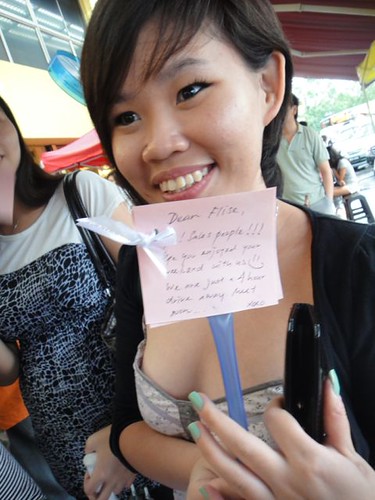 Dear Elise,
! Sales people!!!
you enjoyed your
weekend with us!!
We are just a 4 hour
drive away next